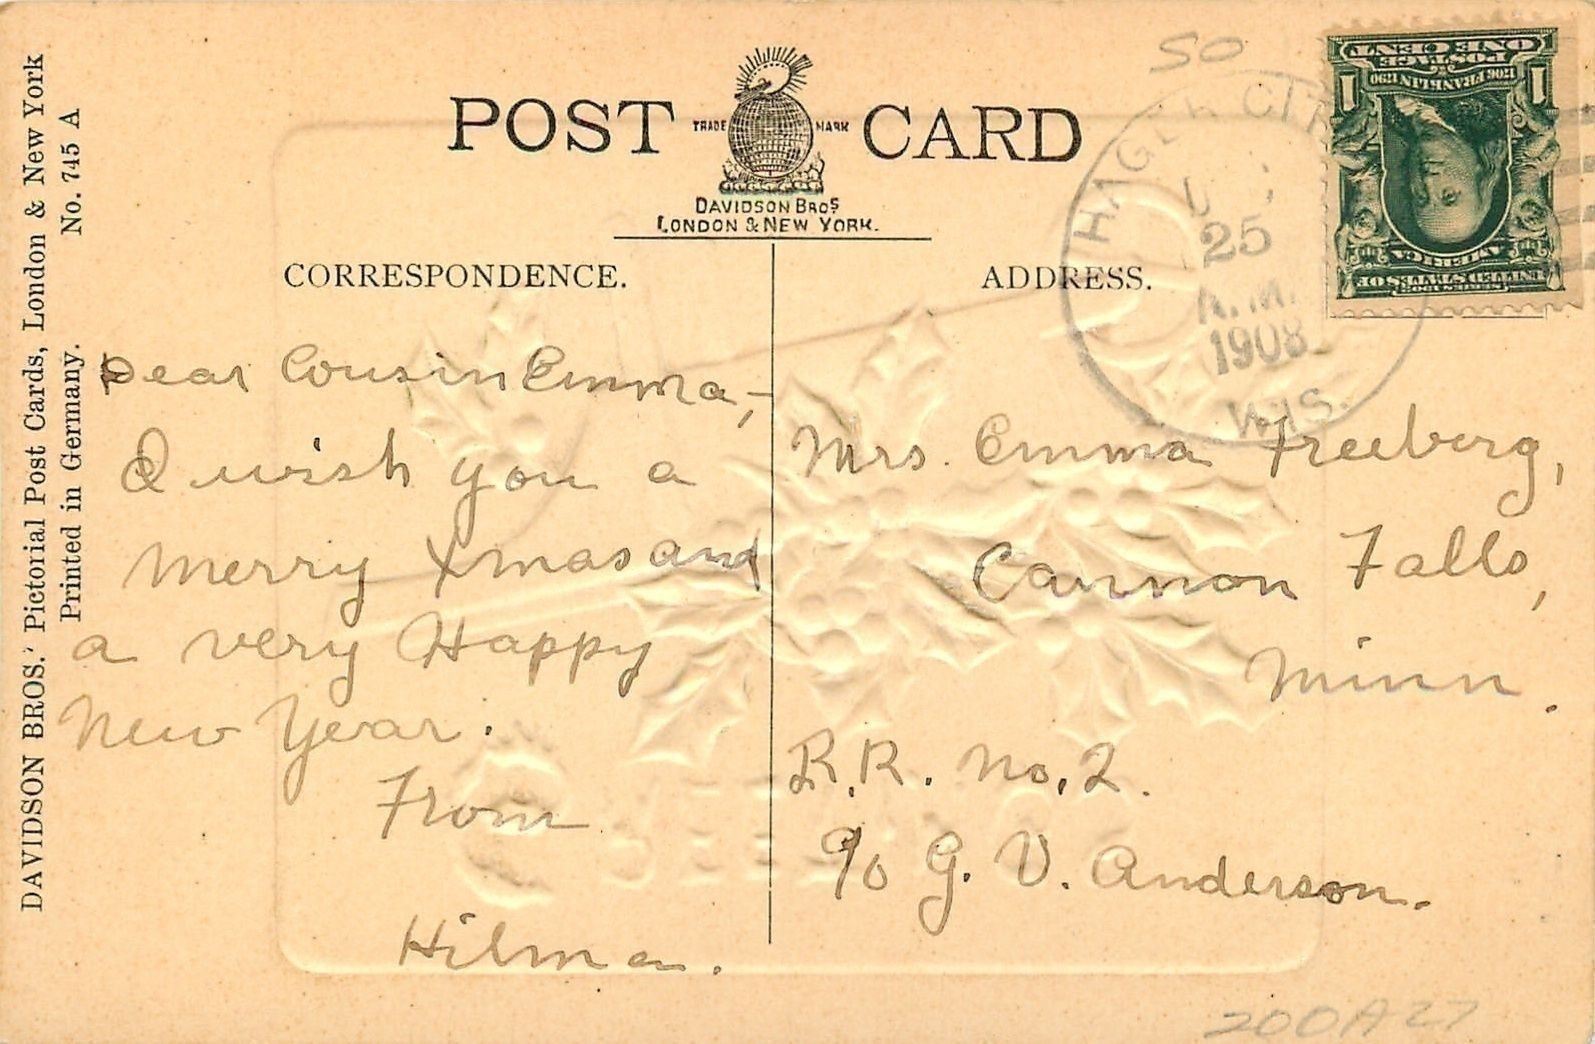 DAVIDSON BROS.' Pictorial Post Cards, London & New York
Printed in Germany. No. 745 A
POST CARD
TRADE MARK
DAVIDSON BROS
LONDON & NEW YORK.
CORRESPONDENCE.
Dear Cousin Emma,-
I wish you a
Merry Xmas and
a very Happy
New Year.
From
Hilma.
ADDRESS.
Mrs. Emma Freeberg,
Cannon Falls,
Minn.
R.R. No. 2.
c/o G. V. Anderson.
50
HAGER CITY
25
A.M.
1908
WIS.
ONE CENT
POSTAGE
1706 FRANKLIN 1790
1 1
UNITED STATES OF
AMERICA
200A27